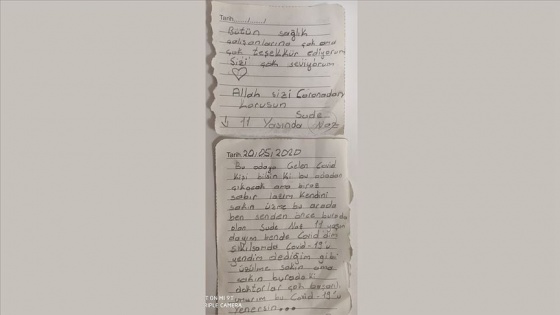 Tarih....../....../......
Bütün sağlık
çalışanlarına çok ama
çok teşekkür ediyorum
Sizi çok seviyorum
Allah sizi Coronadan
korusun
Sude
11 Yaşında Naz
Tarih 20/05/2020
Bu odaya Gelen Covid
kişi bilsin ki bu odadan
çıkacak ama biraz
sabır lazım Kendini
sakın üzme bu arada
ben senden önce burada
olan Sude Naz 11 yaşın
dayım bende Covid dim
Covid-19'u
yendim dediğim gibi
üzülme sakın ama
sakın buradaki
doktorlar çok
bu Covid-19'u
yenersin...
T ON MI 9
IPLE CAMERA